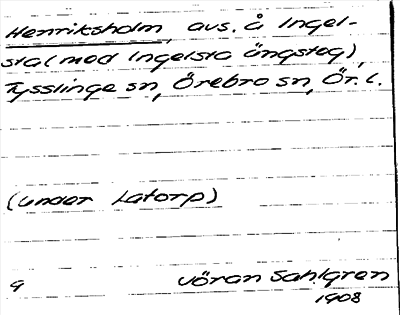 Henriksholm, avs. å Ingel-
sta (med Ingelsta ängsteg),
Tysslinge sn, Örebro sn, Ör. l.
(under Latorp)
9 Jöran Sahlgren
1908